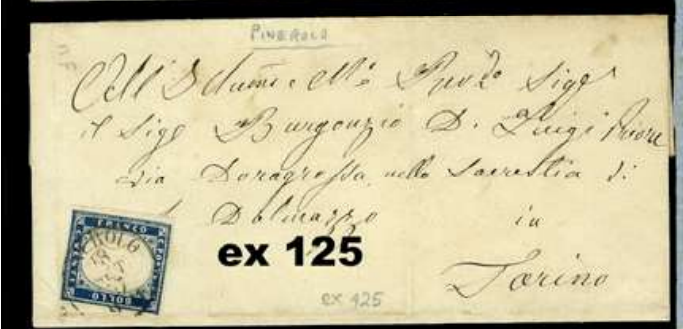 PINEROLO
All' Sigr
il Sigr Burgonzio D. Luigi Priore
via Doragrossa nella Sacrestia di
Dalmazzo in
Torino
FRANCO
BOLLO
ROLO
ex 125
ex 125